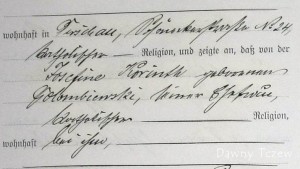 wohnhaft in Dirschau, Schöneckerstrasse No 24,
katholischer Religion, und zeigte an, daß von der
Josefine Korinth geborenen
Golombiewski, seiner Ehefrau,
katholischer Religion,
wohnhaft bei ihm,
Dawny Tczew